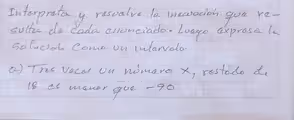 Interpreta y resuelve la inecuación que re-
sulta de cada enunciado. Luego expresa la
solución como un intervalo
a) Tres veces un número x, restado de
15 es menor que -90